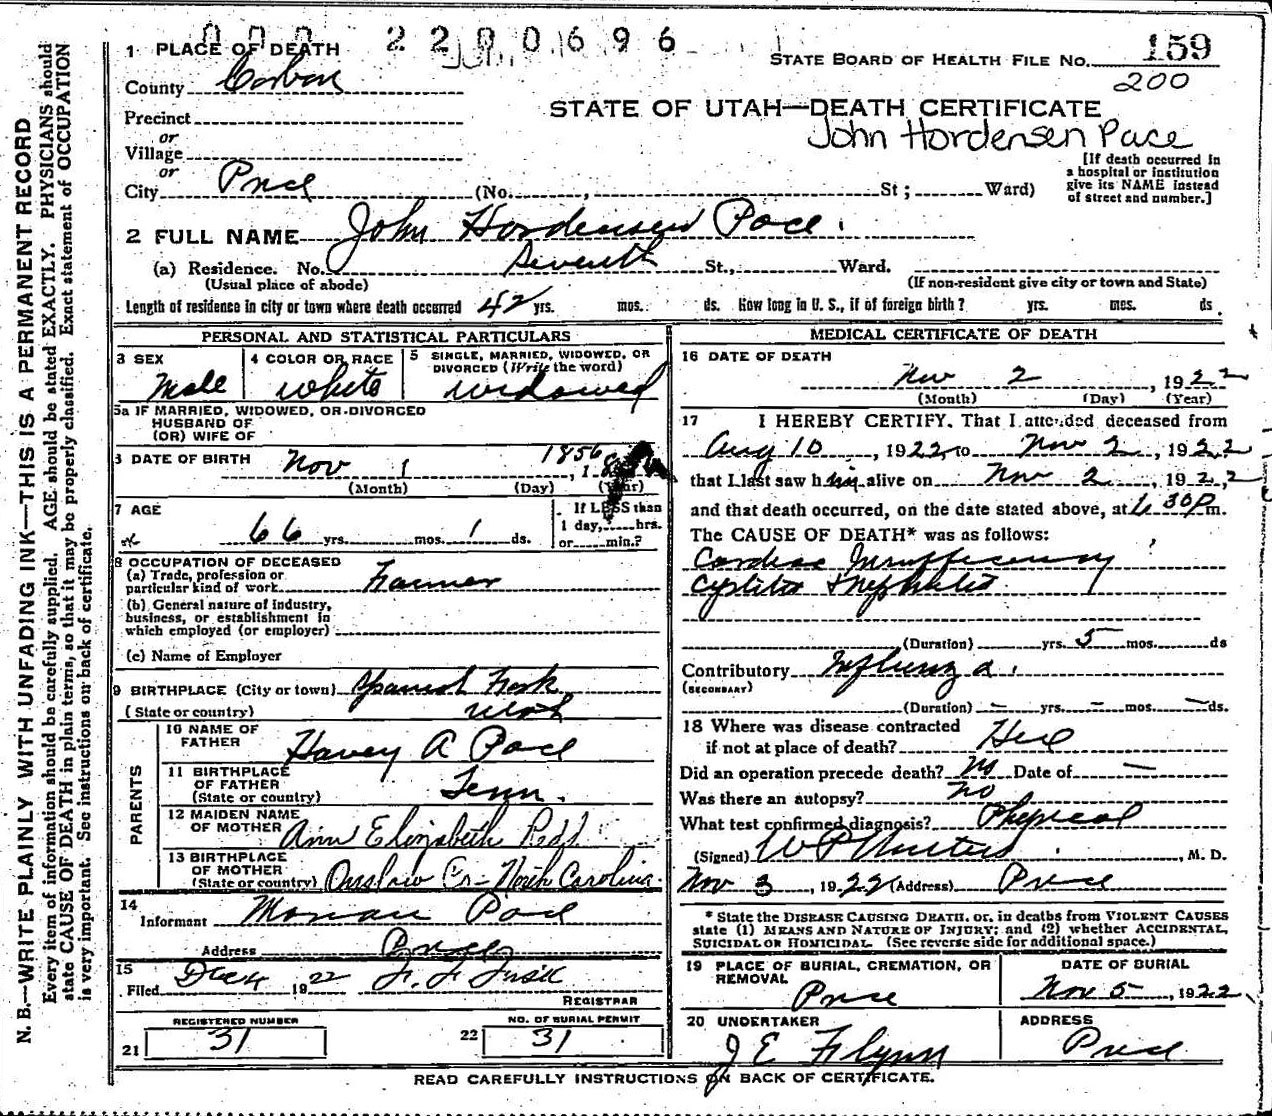 2200696
1 PLACE OF DEATH
STATE BOARD OF HEALTH FILE NO. 159
200
County Carbon
STATE OF UTAH—DEATH CERTIFICATE
John Hordensen Pace
Precinct
or
Village
or
City Price (No. , St ; Ward)
[If death occurred in
a hospital or institution
give its NAME instead
of street and number.]
2 FULL NAME John Hordensen Pace.
(a) Residence. No. Seventh St., Ward.
(Usual place of abode) (If non-resident give city or town and State)
Length of residence in city or town where death occurred 42 yrs. mos. ds. How long in U. S., if of foreign birth? yrs. mos. ds.
PERSONAL AND STATISTICAL PARTICULARS
3 SEX Male
4 COLOR OR RACE White
5 SINGLE, MARRIED, WIDOWED, OR
DIVORCED (Write the word)
widowed
5a IF MARRIED, WIDOWED, OR DIVORCED
HUSBAND OF
(OR) WIFE OF
6 DATE OF BIRTH Nov 1 1856
(Month) (Day) (Year)
7 AGE
66 yrs. mos. 1 ds.
If LESS than
1 day, hrs.
or min.?
8 OCCUPATION OF DECEASED
(a) Trade, profession or
particular kind of work Farmer
(b) General nature of industry,
business, or establishment in
which employed (or employer)
(c) Name of Employer
9 BIRTHPLACE (City or town) Spanish Fork
(State or country) Utah
PARENTS
10 NAME OF
FATHER Harvey A Pace
11 BIRTHPLACE
OF FATHER
(State or country) Tenn.
12 MAIDEN NAME
OF MOTHER Ann Elizabeth Redd
13 BIRTHPLACE
OF MOTHER
(State or country) Onslow Co- North Carolina.
14
Informant Pace
Address Price
15
Filed 1922
REGISTRAR
REGISTERED NUMBER
21 31
NO. OF BURIAL PERMIT
22 31
MEDICAL CERTIFICATE OF DEATH
16 DATE OF DEATH
Nov 2, 1922
(Month) (Day) (Year)
17 I HEREBY CERTIFY. That I attended deceased from
Aug 10, 1922 to Nov 2, 1922
that I last saw him alive on Nov 2, 1922
and that death occurred, on the date stated above, at 6 30P m.
The CAUSE OF DEATH* was as follows:
Cardiac Insufficiency
Cystitis & Nephritis
(Duration) yrs. 5 mos. ds
Contributory Influenza.
(SECONDARY)
(Duration) – yrs. – mos. – ds.
18 Where was disease contracted
if not at place of death? Here
Did an operation precede death? No Date of —
Was there an autopsy? no
What test confirmed diagnosis? Physical
(Signed) , M. D.
Nov 3, 1922 (Address) Price
* State the DISEASE CAUSING DEATH, or, in deaths from VIOLENT CAUSES
state (1) MEANS AND NATURE OF INJURY; and (2) whether ACCIDENTAL,
SUICIDAL OR HOMICIDAL. (See reverse side for additional space.)
19 PLACE OF BURIAL, CREMATION, OR
REMOVAL
Price
DATE OF BURIAL
Nov 5, 1922
20 UNDERTAKER
J E Flynn
ADDRESS
Price
READ CAREFULLY INSTRUCTIONS ON BACK OF CERTIFICATE.
N. B.—WRITE PLAINLY WITH UNFADING INK—THIS IS A PERMANENT RECORD
Every item of information should be carefully supplied. AGE should be stated EXACTLY. PHYSICIANS should
state CAUSE OF DEATH in plain terms, so that it may be properly classified. Exact statement of OCCUPATION
is very important. See instructions on back of certificate.